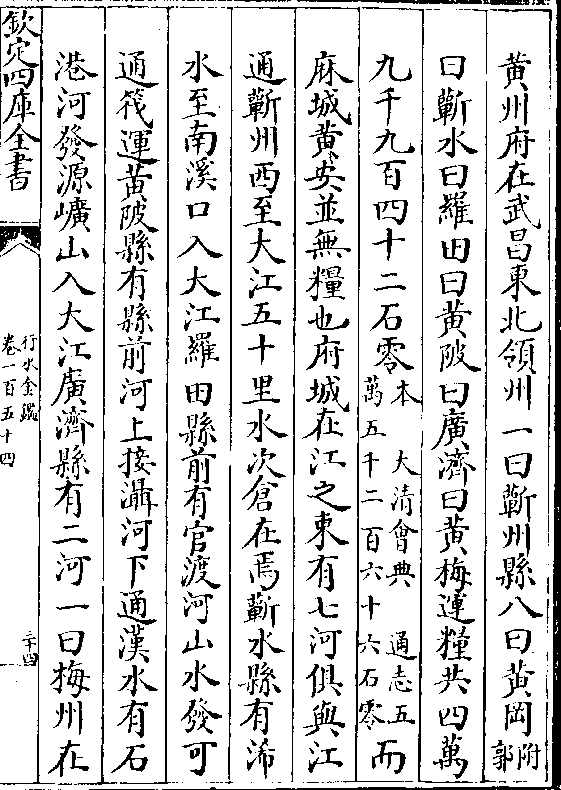 黃州府在武昌東北領州一曰蘄州縣八曰黃岡附郭
曰蘄水曰羅田曰黃陂曰廣濟曰黃梅運糧共四萬
九千九百四十二石零本 大清會典 通志五萬五千二百六十六石零而
麻城黃安並無糧也府城在江之東有七河俱與江
通蘄州西至大江五十里水次倉在焉蘄水縣有浠
水至南溪口入大江羅田縣前有官渡河山水發可
通筏運黃陂縣有縣前河上接灄河下通漢水有石
港河發源嶬山入大江廣濟縣有二河一曰梅州在
欽定四庫全書
行水金鑑
卷一百五十四
二十四